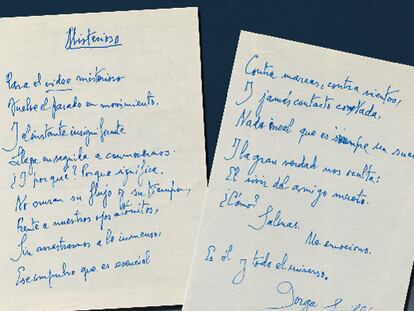 Misterioso
Para el video misterioso
Vuelve el pasado en movimiento,
Y el instante insignificante
Llega en seguida a conmovernos.
¿Y por qué? Porque significa.
No cesan su flujo y su tiempo,
Frente a nuestros ojos atónitos,
Sin arrastrarnos a lo inmenso,
Ese impulso que es esencial
Contra mareas, contra vientos!
Y jamás contacto
Nada real que es siempre un sue
Y la gran verdad nos oculta:
El vivir del amigo muerto.
¿Cómo?
Salinas.
Me emociono.
Es él y todo el universo.
Jorge